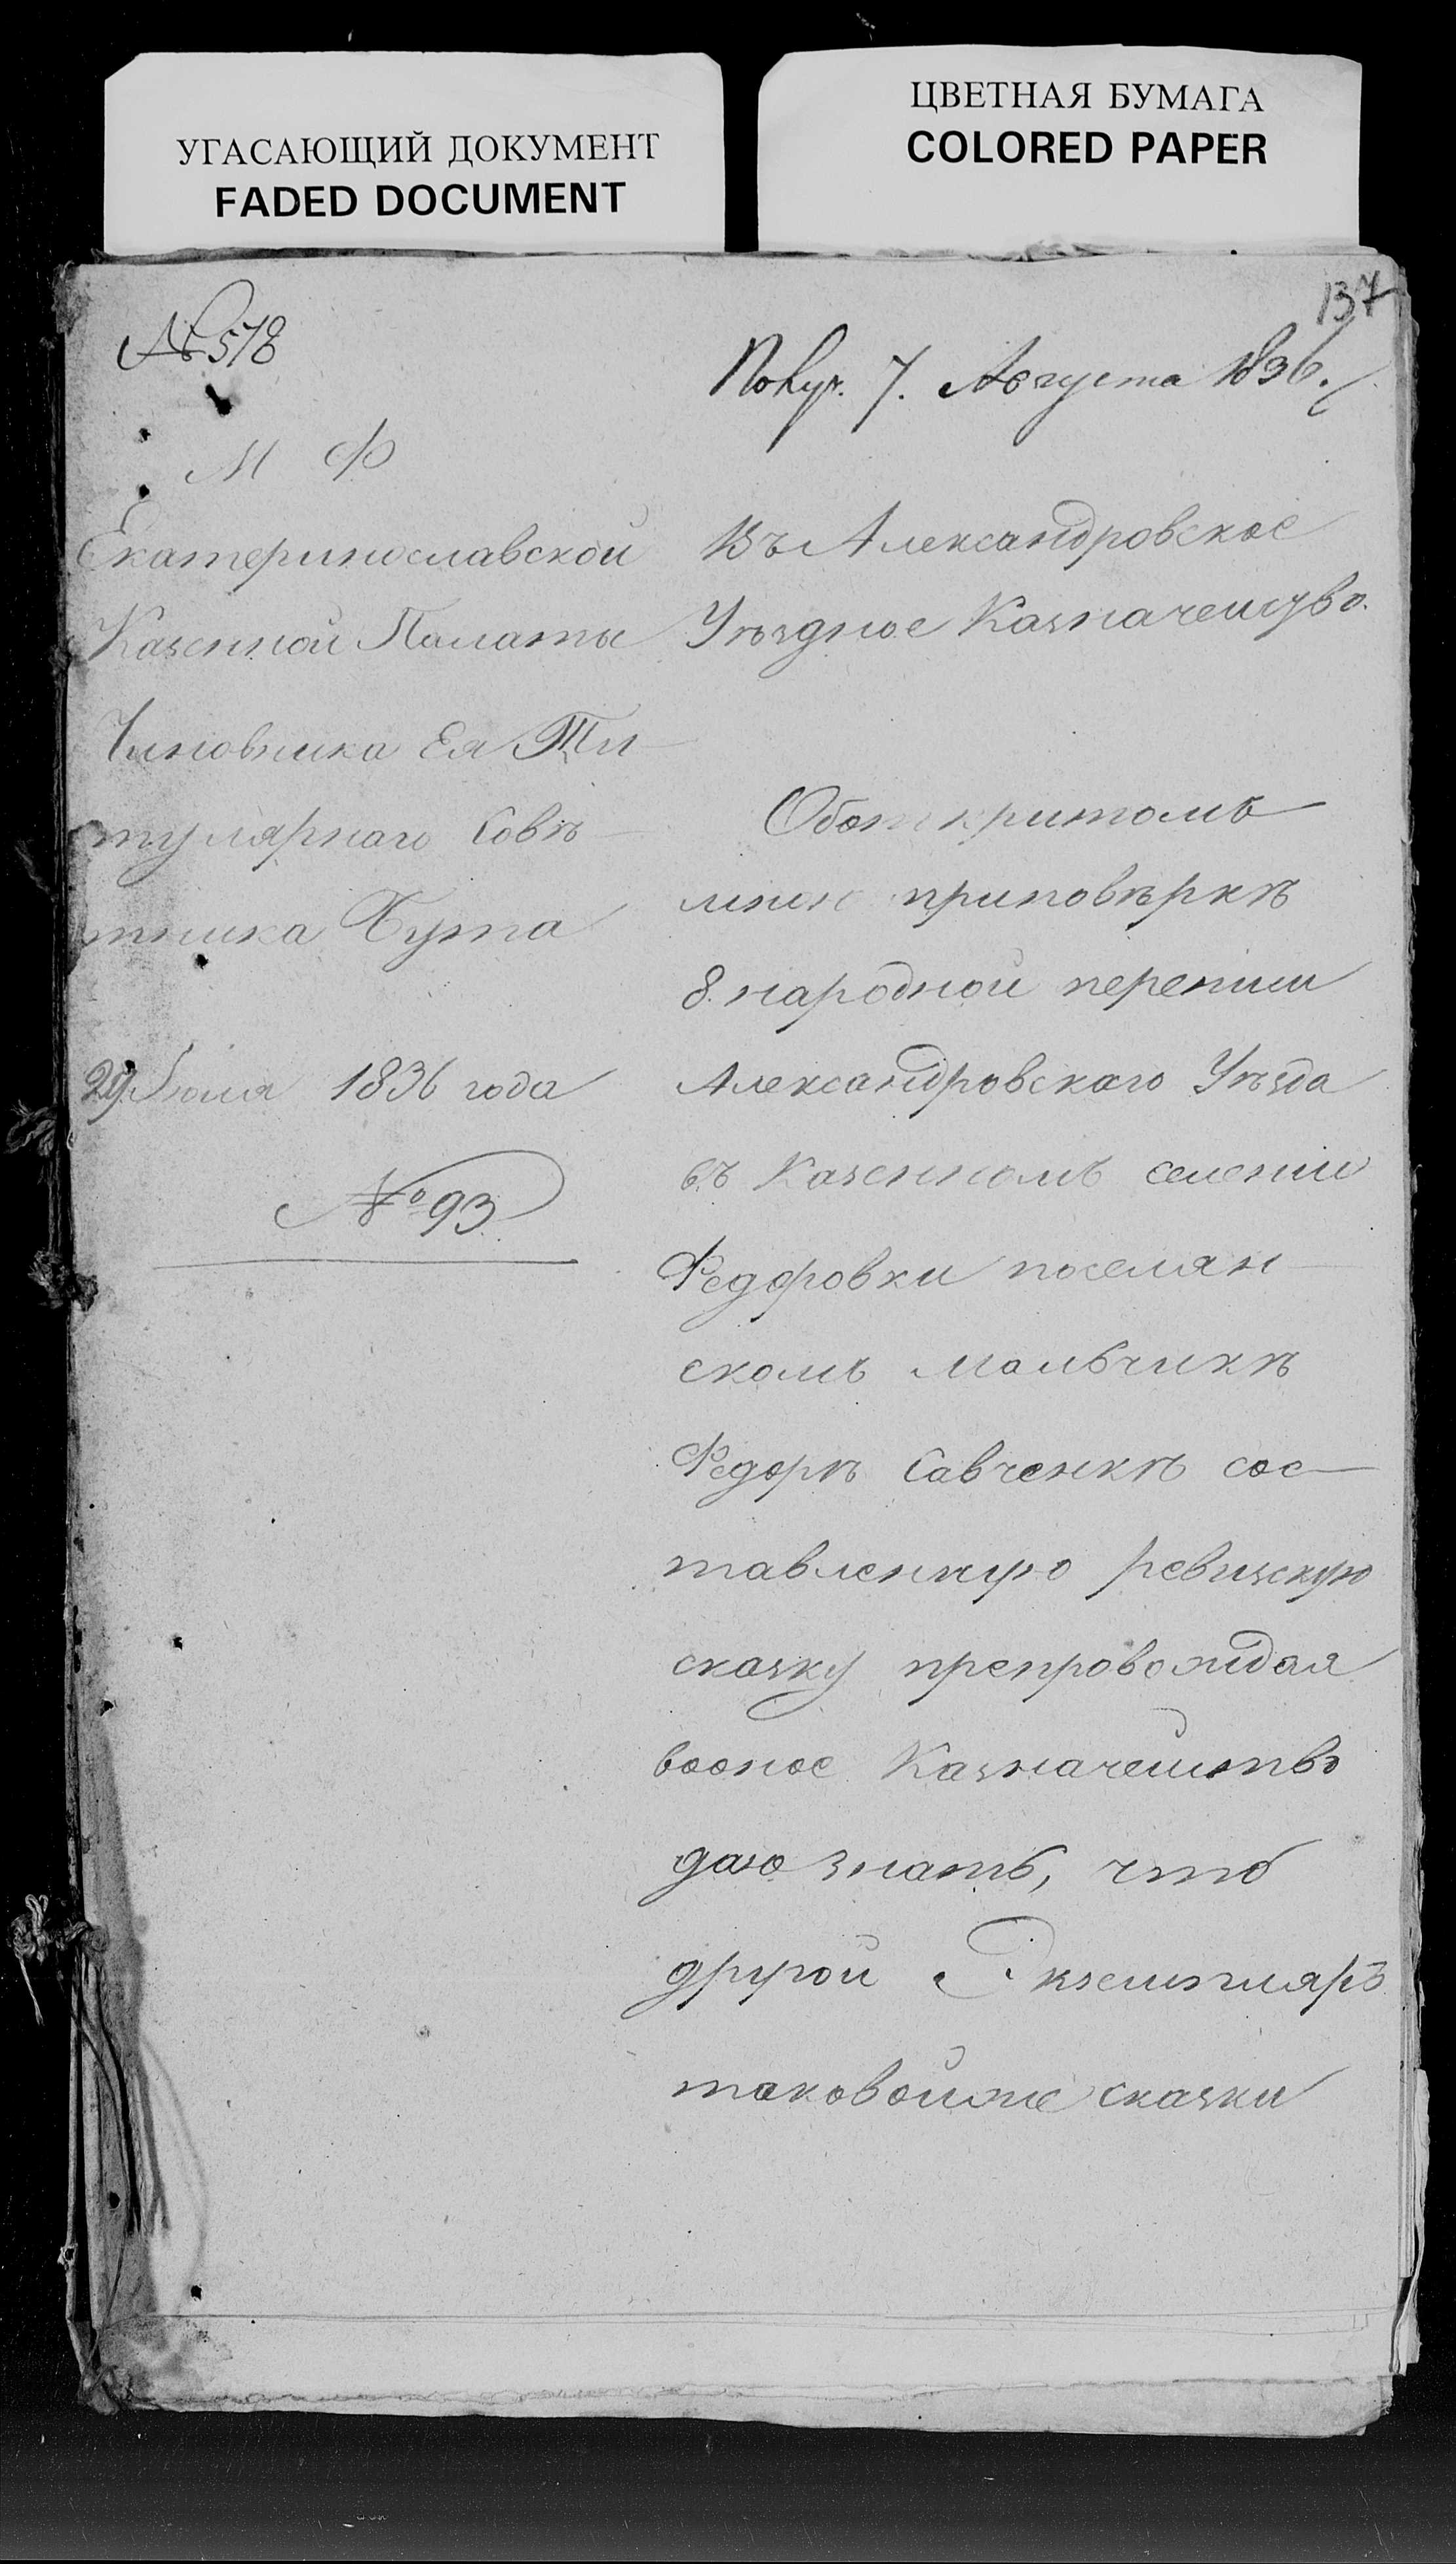 УГАСАЮЩИЙ ДОКУМЕНТ
FADED DOCUMENT
ЦВЕТНАЯ БУМАГА
COLORED PAPER
137
№ 578
Получ. 7. Августа 1836.
М Ф
Екатеринославской
Казенной Палаты
Чиновника Ея Ти
тулярнаго Совѣ
тника Бута
29 Июля 1836 года
№ 93
Въ Александровское
Уѣздное Казначейство.
Оботкритомъ
мною приповѣркѣ
8. народной переписи
Александровскаго Уѣзда
въ Казенномъ селении
Федоровки поселян
скомъ мальчикѣ
Федорѣ Савченкѣ сос
тавленную ревизскую
сказку препровождая
вооное Казначейство
даю знать, что
другой Экземпляръ
таковойже сказки